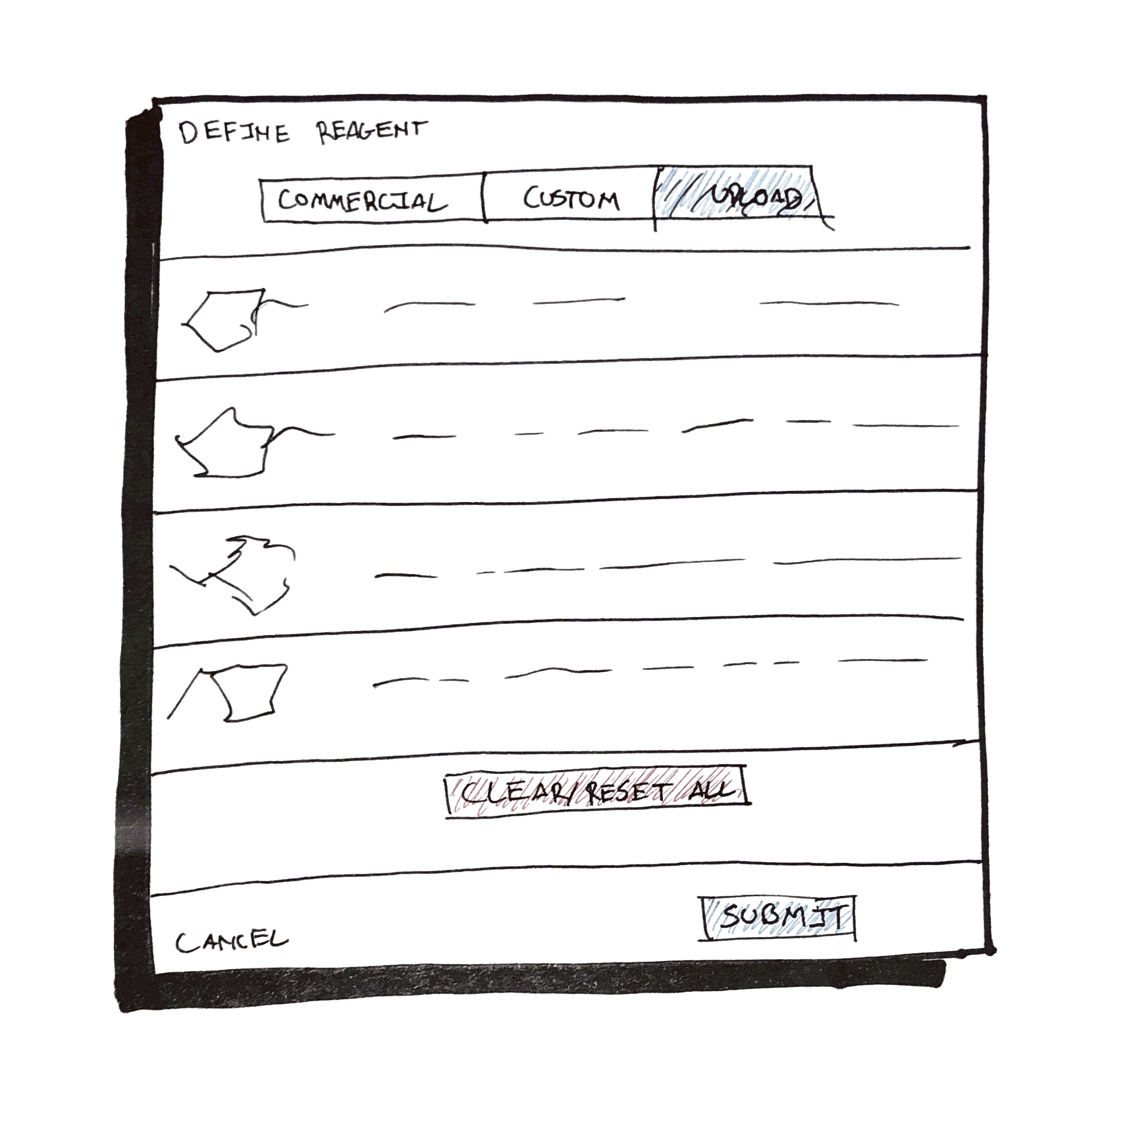 DEFINE REAGENT
COMMERCIAL CUSTOM UPLOAD
CLEAR/RESET ALL
CANCEL SUBMIT